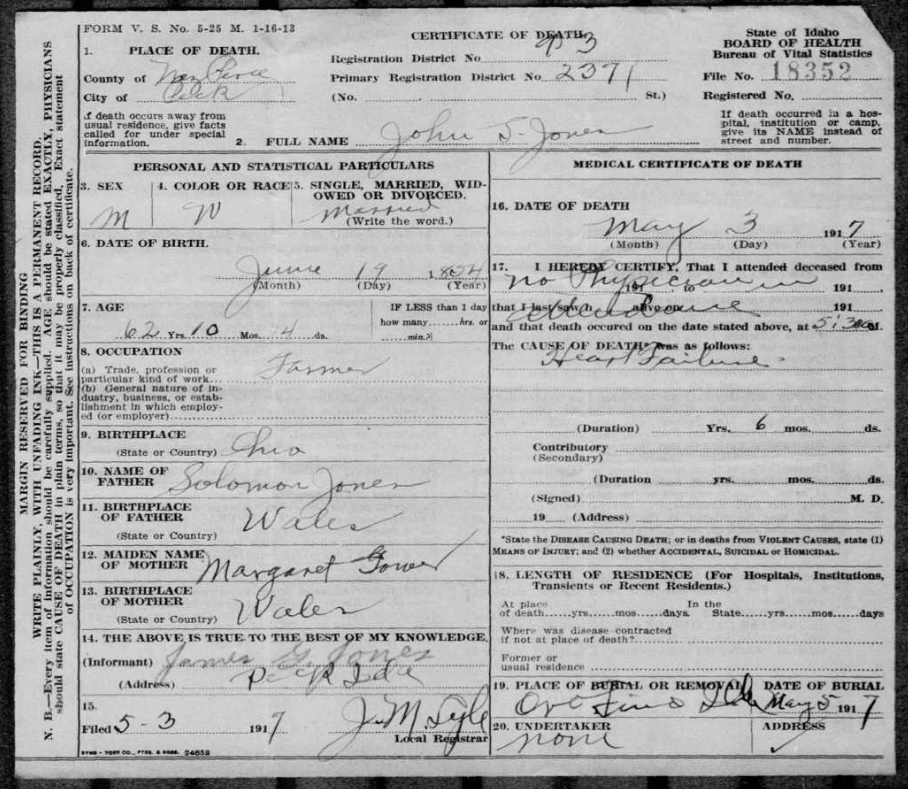 FORM V. S. No. 5-25 M. 1-16-13
CERTIFICATE OF DEATH
State of Idaho
BOARD OF HEALTH
Bureau of Vital Statistics
File No. 18352
Registered No.
1. PLACE OF DEATH.
County of Nez Perce
City of Peck
Registration District No. 3
Primary Registration District No. 2371
(No. St.)
If death occurs away from
usual residence, give facts
called for under special
information.
2. FULL NAME John S. Jones
If death occurred in a hos-
pital, institution or camp,
give its NAME instead of
street and number.
PERSONAL AND STATISTICAL PARTICULARS
3. SEX
M
4. COLOR OR RACE
W
5. SINGLE, MARRIED, WID-
OWED OR DIVORCED.
Married
(Write the word.)
6. DATE OF BIRTH.
June 19 18
(Month) (Day) (Year)
7. AGE
62 Yrs. 10 Mos. 14 ds.
IF LESS than 1 day
how many hrs. or
min.?
8. OCCUPATION
(a) Trade, profession or
particular kind of work Farmer
(b) General nature of in-
dustry, business, or estab-
lishment in which employ-
ed (or employer)
9. BIRTHPLACE
(State or Country) Ohio
10. NAME OF
FATHER Solomon Jones
11. BIRTHPLACE
OF FATHER Wales
(State or Country)
12. MAIDEN NAME
OF MOTHER Margaret Gower
13. BIRTHPLACE
OF MOTHER Wales
(State or Country)
14. THE ABOVE IS TRUE TO THE BEST OF MY KNOWLEDGE.
(Informant) James G. Jones
(Address) Peck Ida
15.
Filed 5-3 1917 J. M. Lyle
Local Registrar
SYMS-YORK CO., PTRS. & BNDS. 24858
MEDICAL CERTIFICATE OF DEATH
16. DATE OF DEATH
May 3 1917
(Month) (Day) (Year)
17. I HEREBY CERTIFY, That I attended deceased from
no Physician in
191 to 191
that I last saw h alive on 191
attendance
and that death occured on the date stated above, at 5:30 M.
The CAUSE OF DEATH* was as follows:
Heart Failure
(Duration) Yrs. 6 mos. ds.
Contributory
(Secondary)
(Duration yrs. mos. ds.
(Signed) M. D.
19 (Address)
*State the DISEASE CAUSING DEATH; or in deaths from VIOLENT CAUSES, state (1)
MEANS OF INJURY; and (2) whether ACCIDENTAL, SUICIDAL or HOMICIDAL.
18. LENGTH OF RESIDENCE (For Hospitals, Institutions,
Transients or Recent Residents.)
At place In the
of death yrs. mos. days. State yrs. mos. days
Where was disease contracted
if not at place of death?
Former or
usual residence
19. PLACE OF BURIAL OR REMOVAL
Oro Fino Ida
DATE OF BURIAL
May 5 1917
20. UNDERTAKER
none
ADDRESS
MARGIN RESERVED FOR BINDING
WRITE PLAINLY, WITH UNFADING INK—THIS IS A PERMANENT RECORD.
N. B.—Every item of information should be carefully supplied. AGE should be stated EXACTLY, PHYSICIANS
should state CAUSE OF DEATH in plain terms, so that it may be properly classified. Exact statement
of OCCUPATION is very important. See instructions on back of certificate.